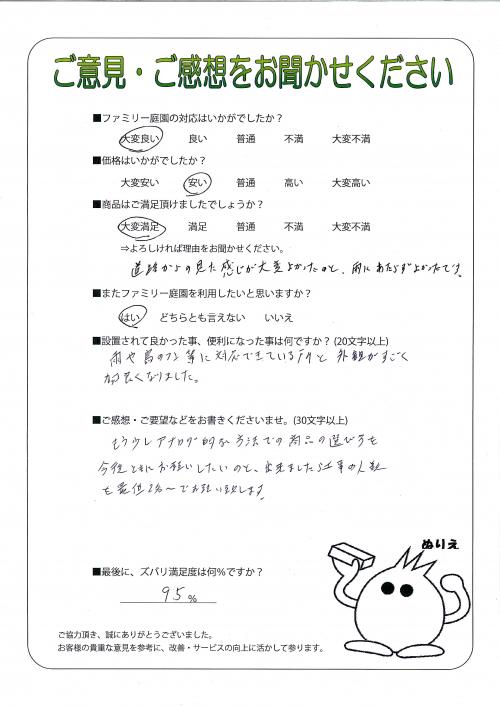 ご意見・ご感想をお聞かせください
■ファミリー庭園の対応はいかがでしたか？
大変良い 良い 普通 不満 大変不満
■価格はいかがでしたか？
大変安い 安い 普通 高い 大変高い
■商品はご満足頂けましたでしょうか？
大変満足 満足 普通 不満 大変不満
⇒よろしければ理由をお聞かせください。
道路からの見た感じが大変よかったのと、雨にあたらずよかったです。
■またファミリー庭園を利用したいと思いますか？
はい どちらとも言えない いいえ
■設置されて良かった事、便利になった事は何ですか？(20文字以上)
雨や鳥のフン等に対応できている所と外観がすごく
良くなりました。
■ご感想・ご要望などをお書きくださいませ。(30文字以上)
もう少しアナログ的な方法での商品の選び方を
今後ともにお願いしたいのと、出来ましたら工事の人数
を最低2名〜でお願い致します
ぬりえ
■最後に、ズバリ満足度は何%ですか？
95%
ご協力頂き、誠にありがとうございました。
お客様の貴重な意見を参考に、改善・サービスの向上に活かして参ります。